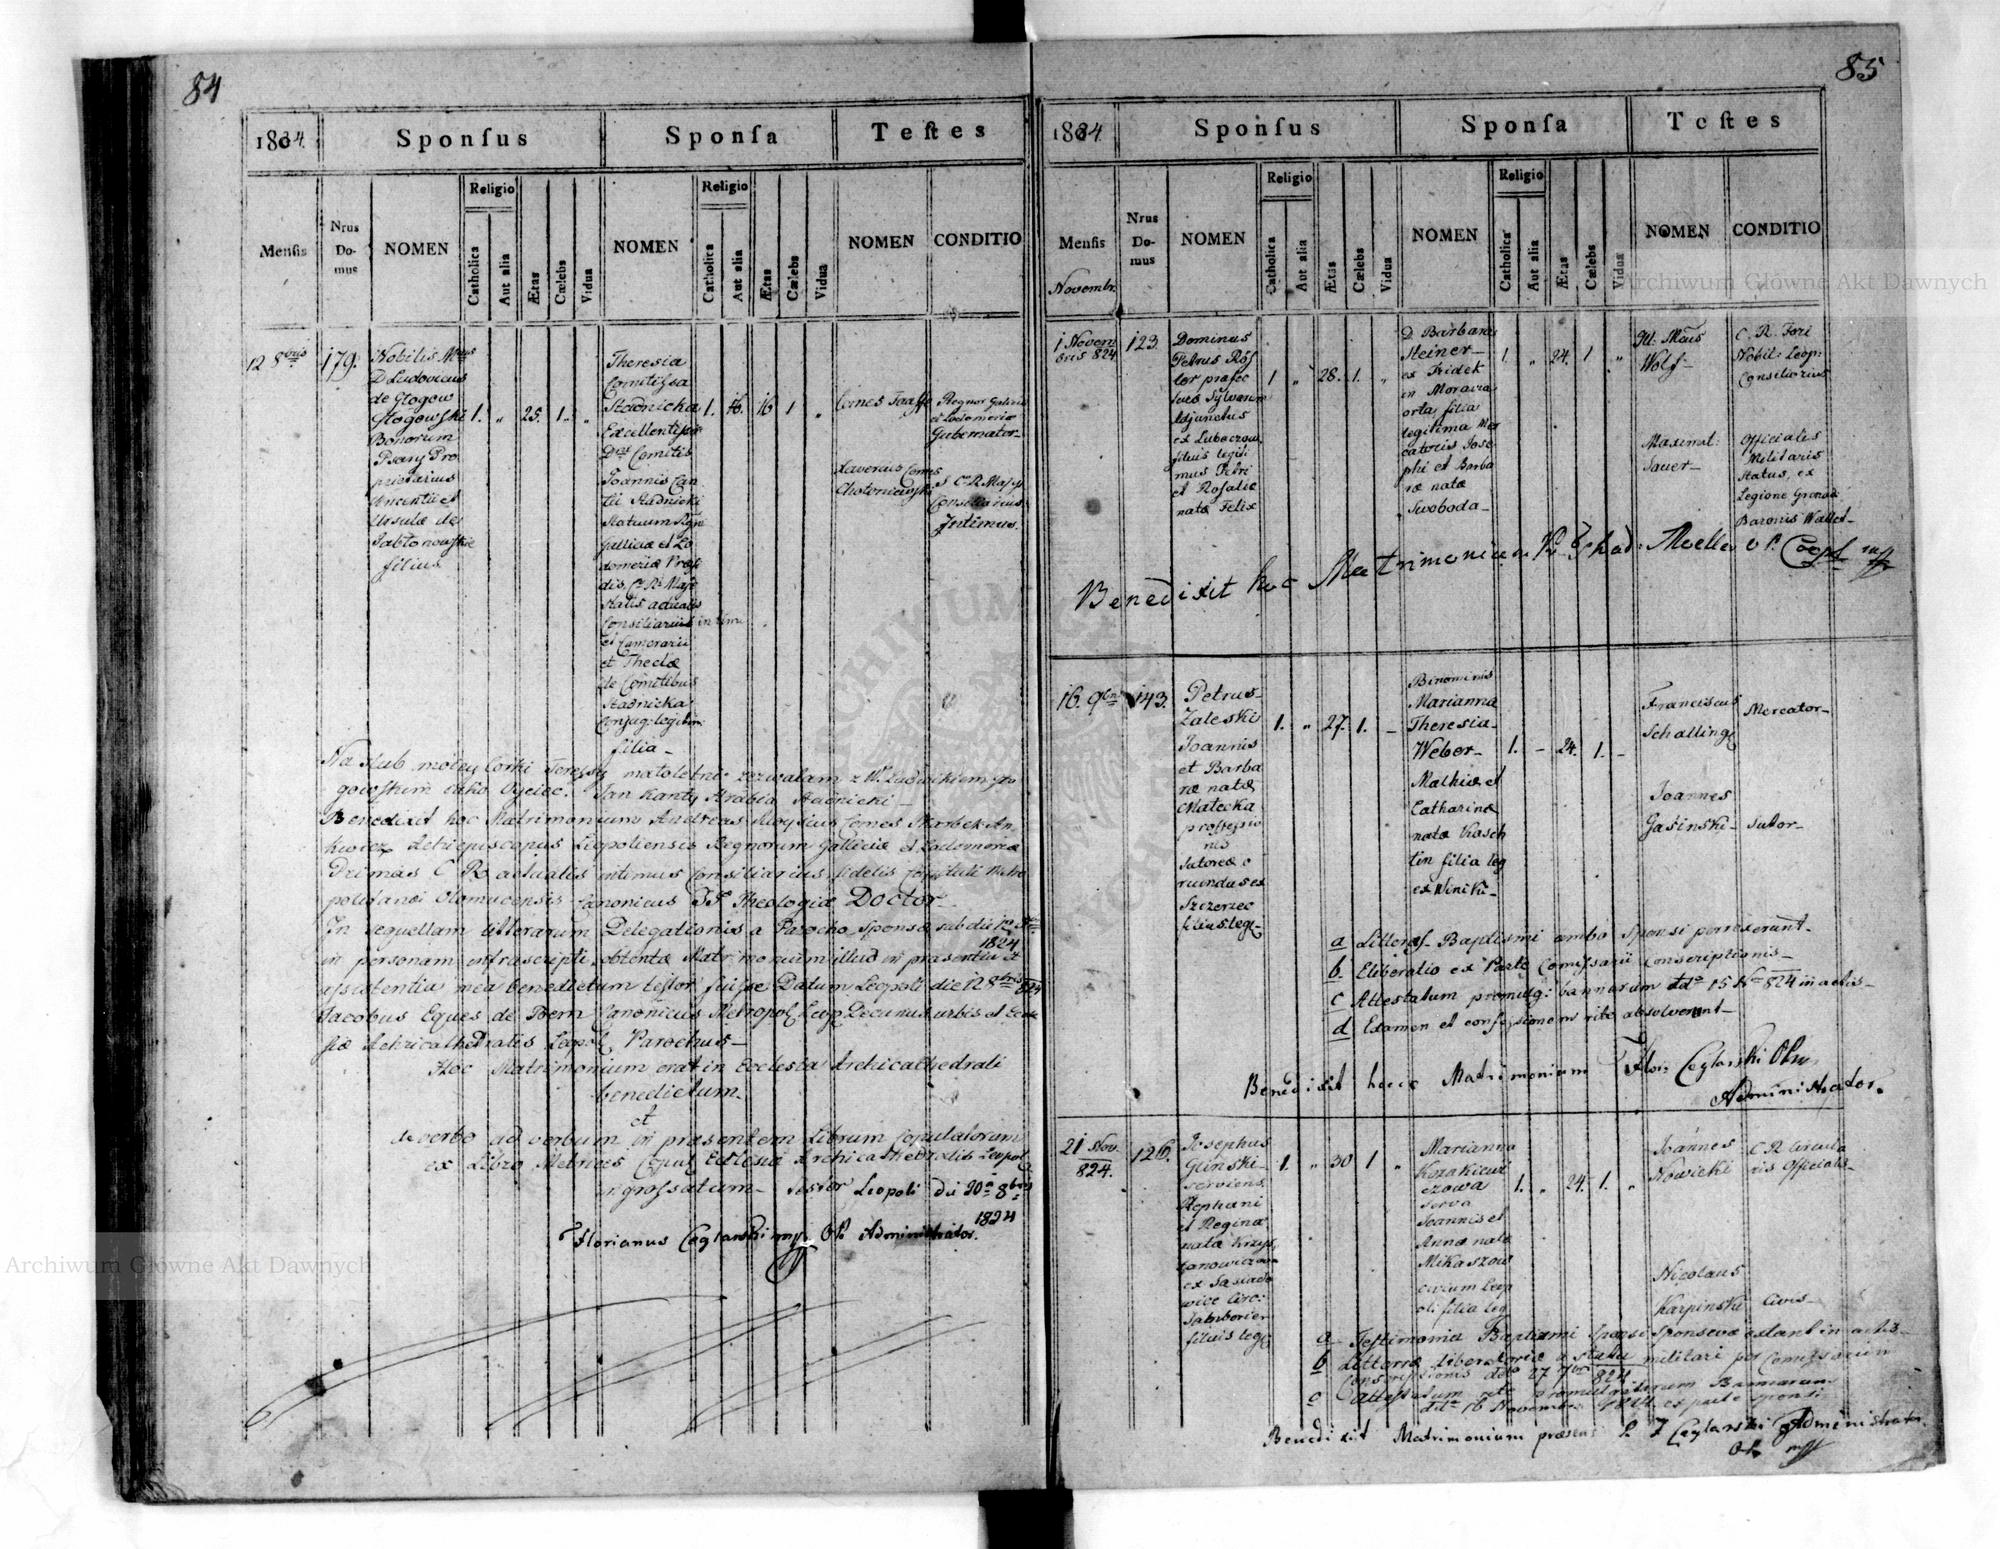 84
1824.
Sponſus
Sponſa
Teſtes
Menſis
Nrus Do-mus
NOMEN
Religio
Catholica
Aut alia
Ætas
Cælebs
Vidua
NOMEN
Religio
Catholica
Aut alia
Ætas
Cælebs
Vidua
NOMEN
CONDITIO
12 8bris
179.
Nobilis
D Ludovicus
de Glogow
Glogowski
Bonorum
Psary Pro
prietarius
Vincentii et
Ursulæ de
Jabłonowskie
filius
1.
"
25.
1.
"
Theresia
Comitissa
Stadnicka
Excellentissi
Dni Comitis
Joannis Can
tii Stadnicki
Statuum Regni
Galliciæ et Lo
domeriæ Præsi
dis, C. R. Maje
statis actualis
Consiliarii intimi
et Camerarii
et Theclæ
de Comitibus
Stadnicka
Conjug: legitim:
filia
1.
16
1
"
Comes Taaffe
Regnor Galiciæ
et Lodomeriæ
Gubernator
Xaverius Comes
S C R Maj
Consiliarius
Intimus.
Na slub moiey Corki Teressy małoletnie zezwalam z W. Ludwikiem Glo
gowskim iako Oyciec. Jan Kanty Hrabia Stadnicki
Benedixit hoc Matrimonium Andreas Aloysius Comes Skarbek An
kwicz Archiepiscopus Leopoliensis Regnorum Galliciæ et Lodomeriæ
Primas C R actualis intimus Consiliarius, fidelis Capituli Metro
politanei Olomucensis Canonicus SS Theologiæ Doctor
In sequellam litterarum Delegationis a Parocho Sponsæ sub die
1824
in personam infrascripti, obtentæ Matrimonium illud in præsentia et
assistentia mea benedictum testor fuisse Datum Leopoli die 12 8bris 824
Jacobus Eques de Bem Canonicus Metropol Leop Decanus urbis et Eccle
siæ Archicathedralis Leopol Parochus
Hoc Matrimonium erat in Ecclesia Archicathedrali
benedictum
et
de verbo ad verbum in præsentem Librum Copulatorum
ex Libro Metrices Copul Ecclesiæ Archicathedralis Leopol
ingrossatum testor Leopoli die 20a 8bris
1824
Florianus Ceglarski mp OP Administrator.
85
1824.
Sponſus
Sponſa
Teſtes
Menſis
Novembr.
Nrus Do-mus
NOMEN
Religio
Catholica
Aut alia
Ætas
Cælebs
Vidua
NOMEN
Religio
Catholica
Aut alia
Ætas
Cælebs
Vidua
NOMEN
CONDITIO
1 Novem
bris 824
123.
Dominus
Petrus Rös
ler præfec
turæ Sylvarum
Adjunctus
ex Lubaczow
filius legiti
mus Petri
et Rosaliæ
natæ Felix
1
"
28.
1.
"
D Barbara
Steiner
ex Fridek
in Moravia
orta filia
legitima Mer
catoris Jose
phi et Barba
ræ natæ
Swoboda
1.
"
24.
1
"
Wolf
C. R. Fori
Nobil: Leop:
Consiliarius
Maximil:
Sauer
Officialis
Militaris
Status, ex
Legione Granad
Baronis Wattet
Benedixit hoc Matrimonium Pr Thad: Moeller O P. Coop mp
16. 9bris
143.
Petrus
Zaleski
Joannis
et Barba
ræ natæ
Matecka
professio
nis
Sutoreæ o
riundus ex
Szczerzec
filius leg.
1.
"
27.
1.
Binominis
Marianna
Theresia
Weber
Mathiæ et
Catharinæ
natæ Kasch
tin filia leg
ex Winiki
1.
24.
1.
Franciscus
Schalling
Mercator
Joannes
Gasinski
sutor
a Litteras Baptismi ambo Sponsi porrexerunt
b. Eliberatio ex Parte Comissarii Conscriptionis
c Attestatum promulg: bannorum ddo 15 Nov 824 in actis
d Examen et confessionem rite absolverunt
Benedixit hocce Matrimonium Flor: Ceglarski OP
Administrator.
21 Nov.
824.
126.
Josephus
Glinski
serviens
Stephani
et Reginæ
natæ Krzys
tanowiczow
ex Sasiado
wice Circ:
Samborien
filius leg
1.
"
30
1
"
Marianna
Kozakiewi
czowa
Serva
Joannis et
Annæ natæ
Mikaszow
civium Leop
oli filia leg
1.
"
24.
1.
"
Joannes
Nowicki
C R Circula
ris Officialis
Nicolaus
Karpinski
Civis
a Testimonia Baptismi Sponsi Sponsæve extant in actis
b Litteræ liberatoriæ a statu militari per Comissarium
Conscriptionis ddo 27 7bris 824
c Attestatum rite promulgatorum Bannorum
ddo 16 Novembr 1824 ex parte sponsi
Benedixit Matrimonium præsens P. F Ceglarski Administrator
OP mp
Archiwum Główne Akt Dawnych
Archiwum Główne Akt Dawnych